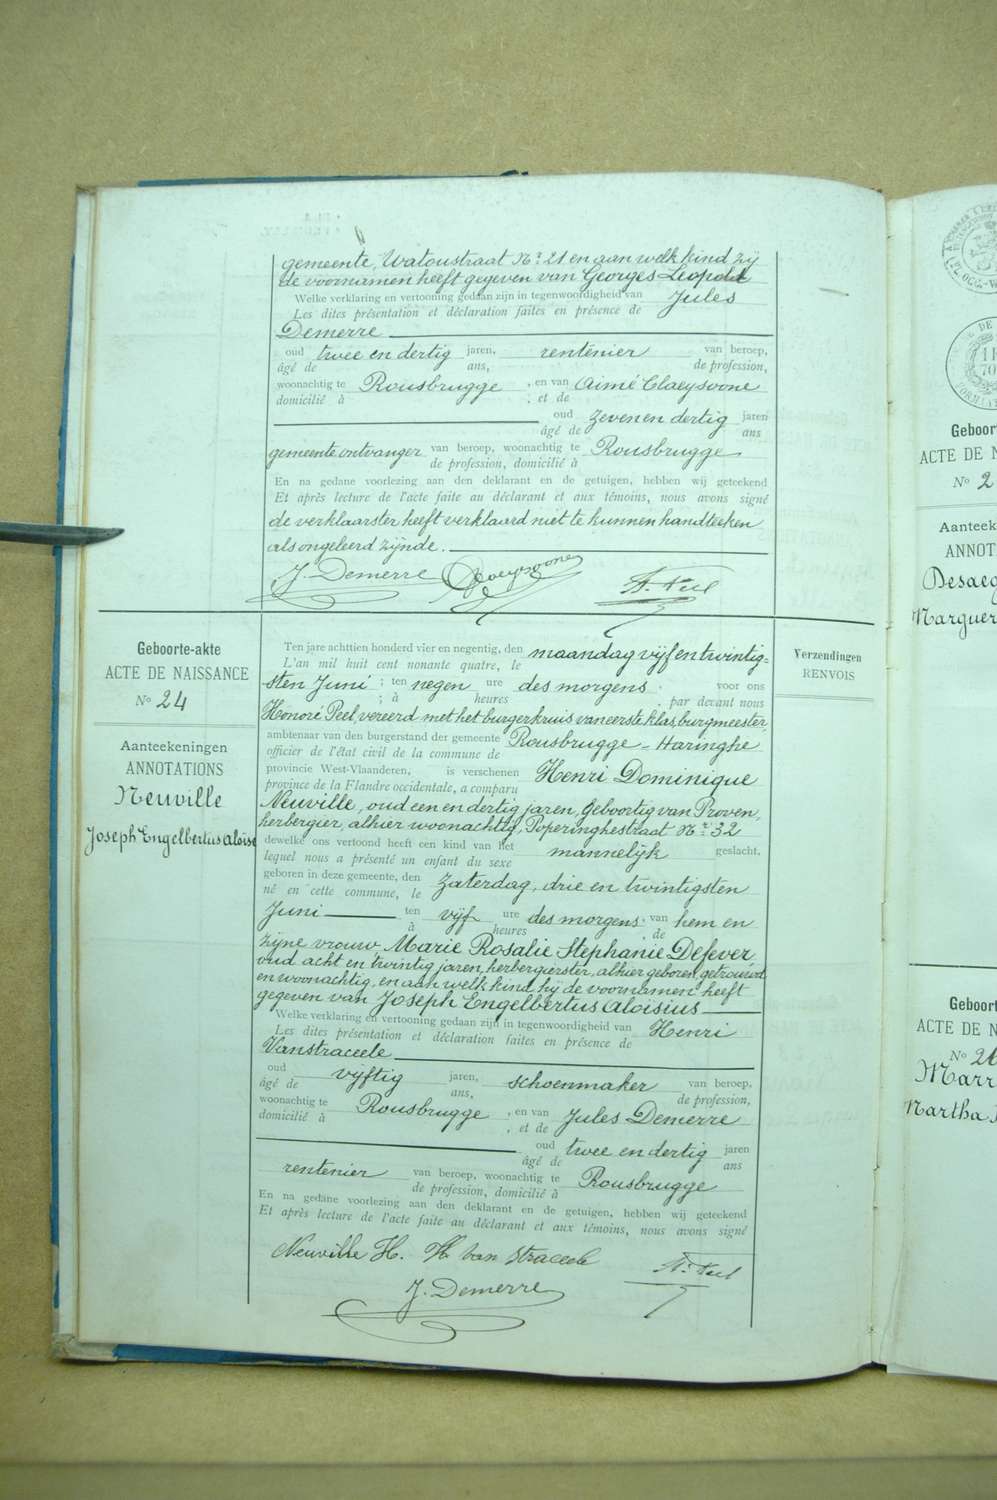 gemeente, Watoustraat Nº 21 en aan welk kind zij
de voornamen heeft gegeven van Georges Leopold
Welke verklaring en vertooning gedaan zijn in tegenwoordigheid van Jules
Les dites présentation et déclaration faites en présence de
Demerre
oud twee en dertig jaren, rentenier van beroep,
âgé de ans, de profession,
woonachtig te Rousbrugge, en van Aimé Claeysoone
domicilié à , et de
oud zeven en dertig jaren
âgé de ans
gemeente ontvanger van beroep, woonachtig te Rousbrugge
de profession, domicilié à
En na gedane voorlezing aan den deklarant en de getuigen, hebben wij geteekend
Et après lecture de l'acte faite au déclarant et aux témoins, nous avons signé
de verklaarster heeft verklaard niet te kunnen handteeken
als ongeleerd zijnde.
J. Demerre Claeysoone H. Peel
Geboorte-akte
ACTE DE NAISSANCE
Nº 24
Aanteekeningen
ANNOTATIONS
Neuville
Joseph Engelbertus Aloïse
Ten jare achttien honderd vier en negentig, den maandag vijf en twintig=
L'an mil huit cent nonante quatre, le
sten Juni ; ten negen ure des morgens , voor ons
; à heures , par devant nous
Honoré Peel, vereerd met het burgerkruis van eerste klas, burgmeester,
ambtenaar van den burgerstand der gemeente Rousbrugge-Haringhe
officier de l'état civil de la commune de
provincie West-Vlaanderen, is verschenen Henri Dominique
province de la Flandre occidentale, a comparu
Neuville, oud een en dertig jaren, geboortig van Proven,
herbergier, alhier woonachtig, Poperinghestraat Nr 32
dewelke ons vertoond heeft een kind van het mannelijk geslacht.
lequel nous a présenté un enfant du sexe
geboren in deze gemeente, den Zaterdag, drie en twintigsten
né en cette commune, le
Juni ten vijf ure des morgens, van hem en
à heures de
zijne vrouw, Marie Rosalie Stephanie Defever,
oud acht en twintig jaren, herbergierster, alhier geboren, getrouwd
en woonachtig, en aan welk kind hij de voornamen heeft
gegeven van Joseph Engelbertus Aloisius
Welke verklaring en vertooning gedaan zijn in tegenwoordigheid van Henri
Les dites présentation et déclaration faites en présence de
Vanstraceele
oud vijftig jaren, schoenmaker van beroep,
âgé de ans, de profession,
woonachtig te Rousbrugge, en van Jules Demerre
domicilié à , et de
oud twee en dertig jaren
âgé de ans
rentenier van beroep, woonachtig te Rousbrugge
de profession, domicilié à
En na gedane voorlezing aan den deklarant en de getuigen, hebben wij geteekend
Et après lecture de l'acte faite au déclarant et aux témoins, nous avons signé
Neuville H. H. Van Straceele H. Peel
J. Demerre
Verzendingen
RENVOIS
Geboort
ACTE DE N
Nº 2
Aanteek
ANNOT
Desaeg
Marguer
Geboort
ACTE DE N
Nº 26
Marr
Martha